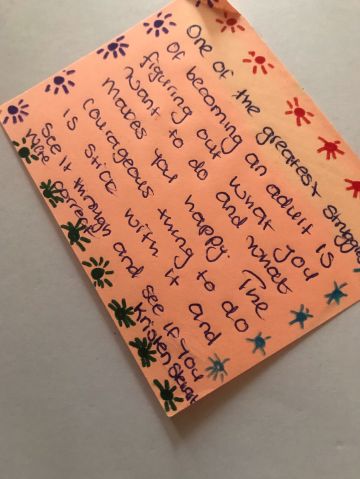 One of the greatest struggle
of becoming an adult is
figuring out what you
want to do and what
makes you happy. The
courageous thing to do
is stick with it and
see it through and see if you
were correct Kristen Stewart